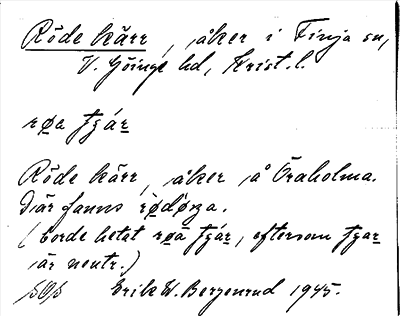 Röde kärr, åker i Finja sn,
V. Göinge hd, Krist. l.
røa tjár
Röde kärr, åker å Öraholma.
Där fanns rødørja.
(borde hetat røä tjár, eftersom tjar
är neutr.)
Erik W. Bergenrud 1945.